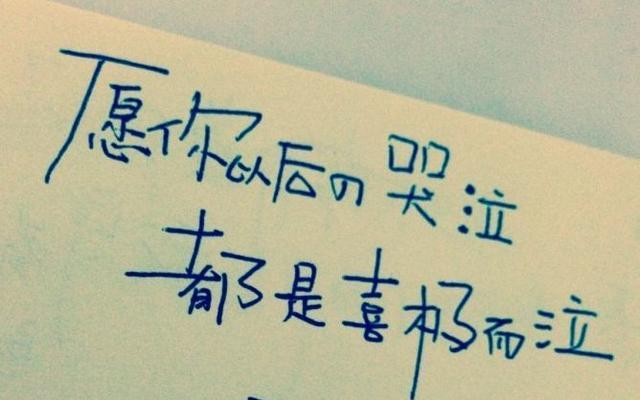 愿你以后的哭泣
都是喜极而泣